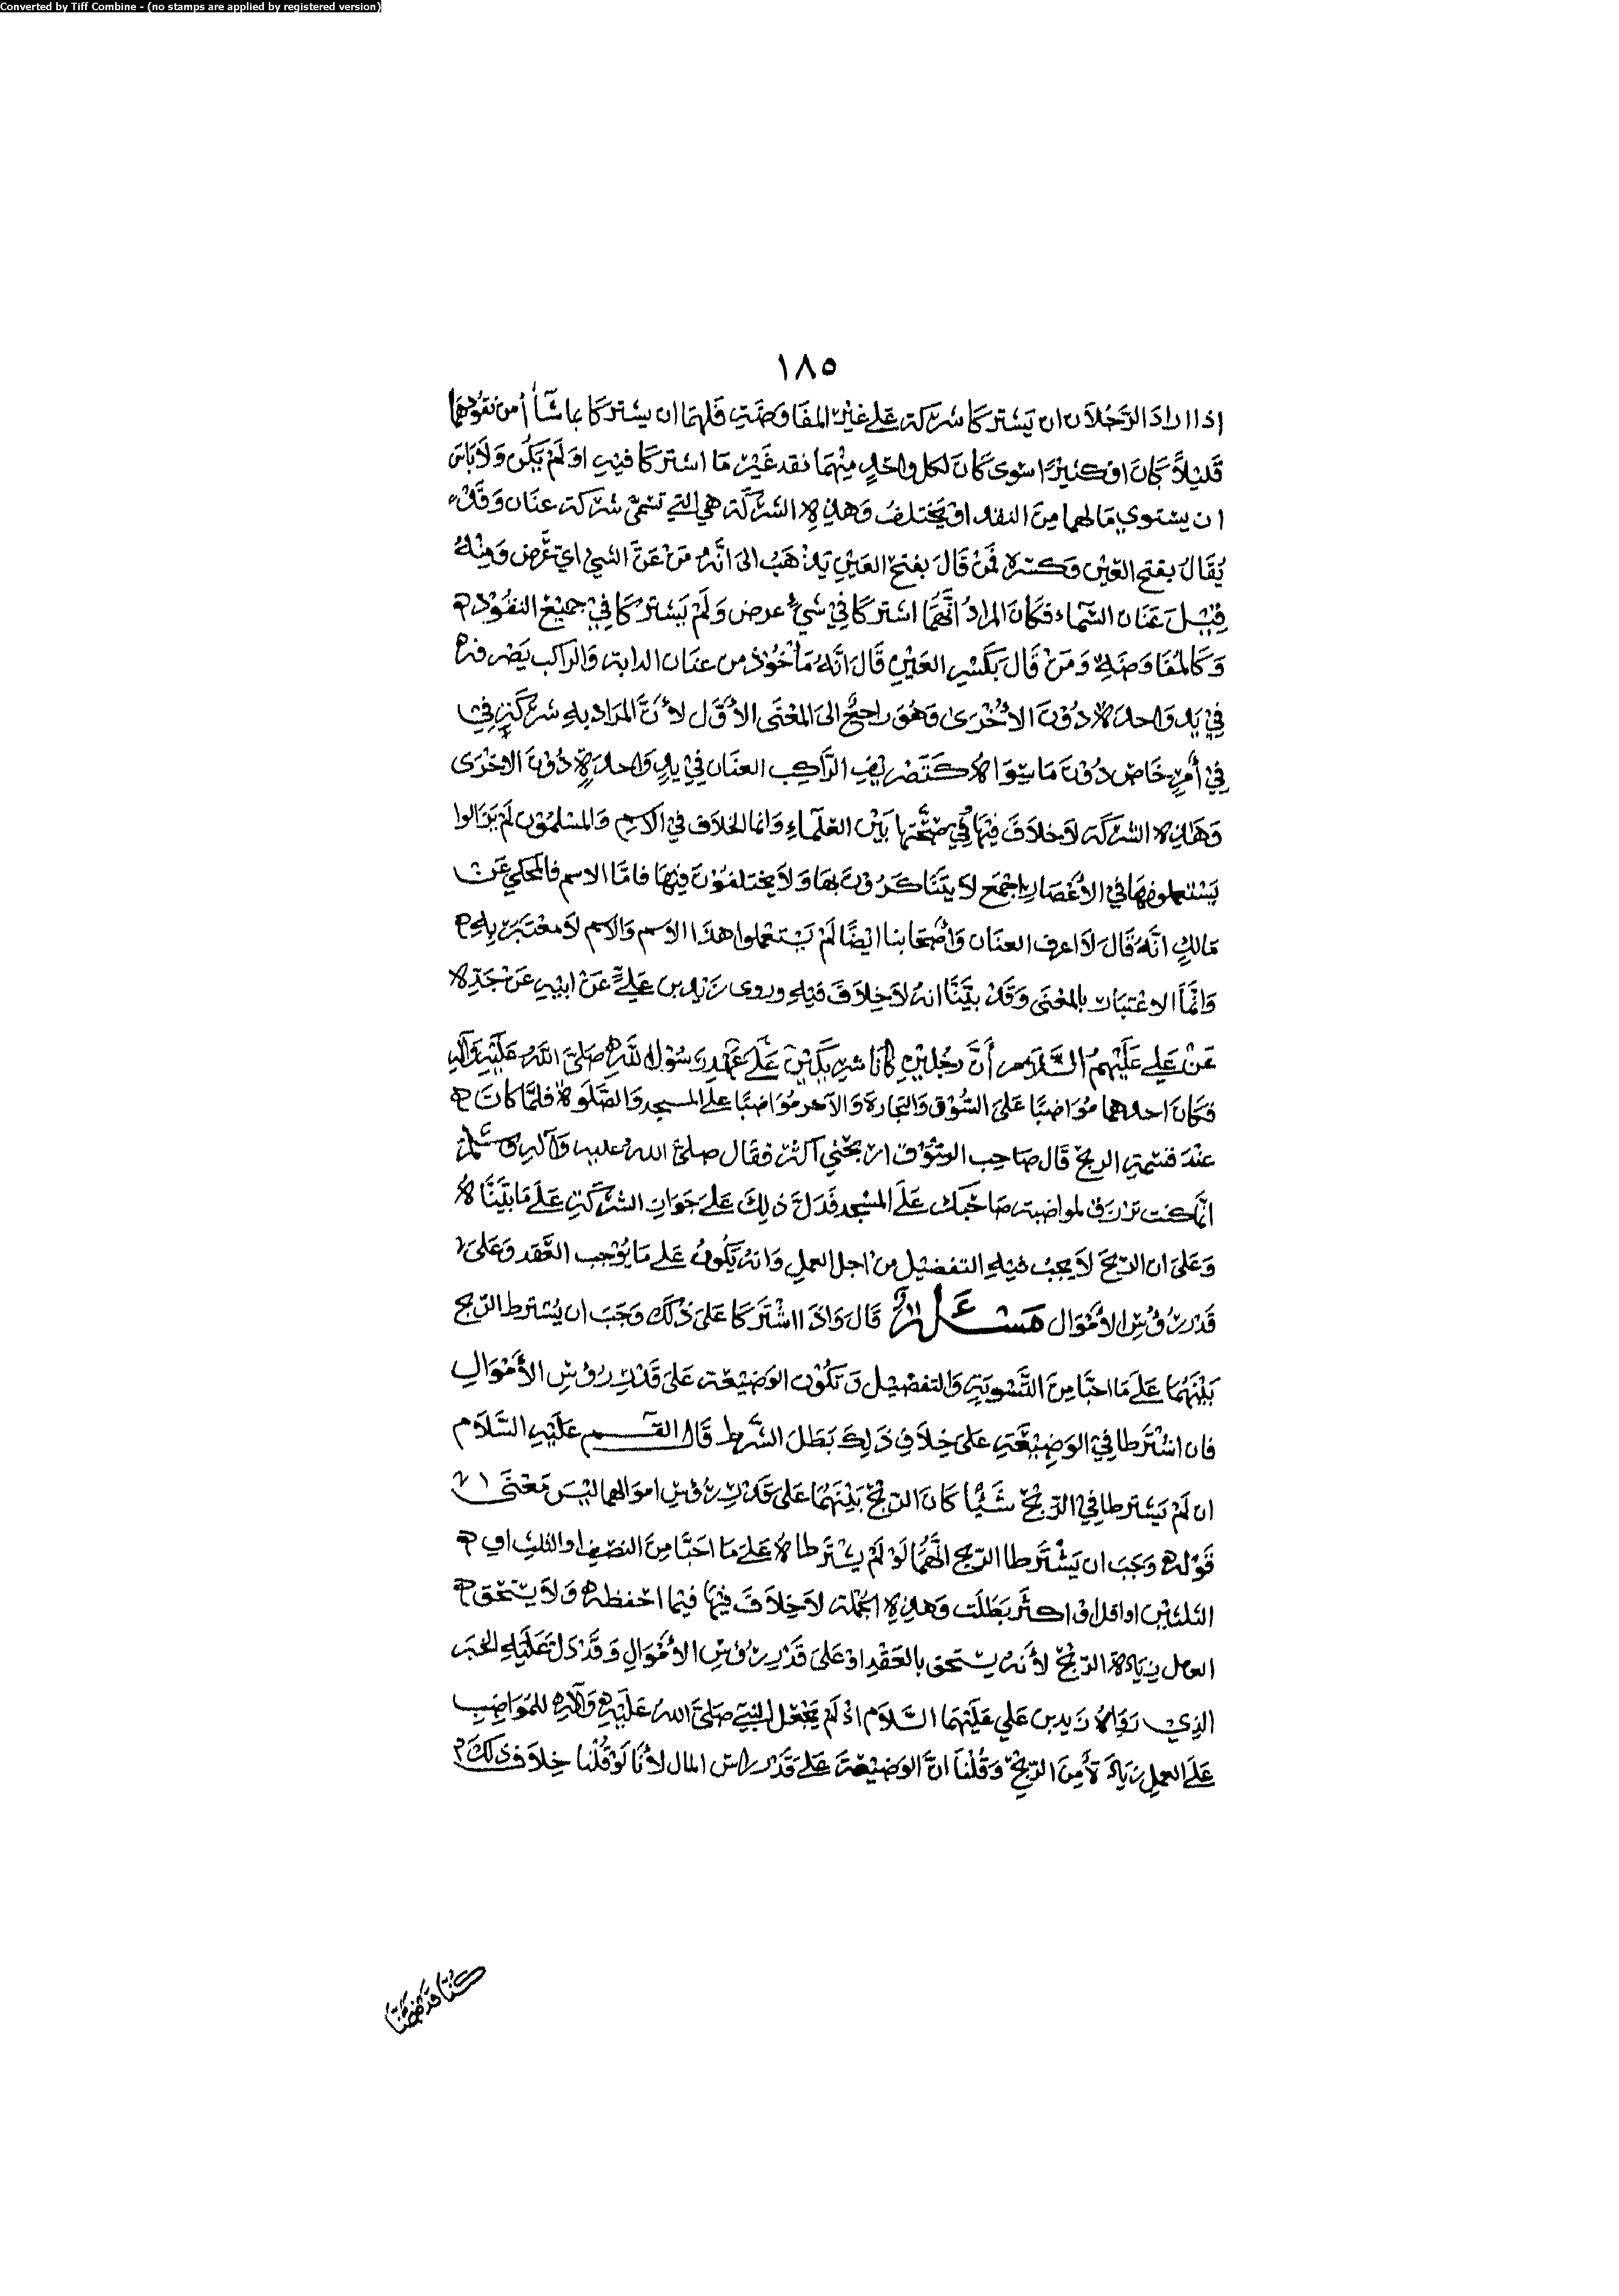 Converted by Tiff Combine - (no stamps are applied by registered version)
١٨٥
إذا اراد الرَّجُلاَن ان يَشتركا شركة على غيْر المفَاوضَةِ فَلهمَا ان يشتركا بما شَآأ من نقودهما
قَليْلاً كَانَ اوْ كثيْرًا سوى كَانَ لكل واحدٍ مِنْهمَا نقد غَيْر مَا اشتركا فيهِ اوْ لَمْ يَكُن وَلاَ بَاسَ
ان يسْتوي مَالهما مِنَ النقد اوْ يختلفُ وَهذِهِ الشَّرْكَة هي التي تسَمّىٰ شَرْكة عنَان وَقَدْ
يُقَالُ بفتح العَيْن وَكسْره فمَنْ قَالَ بفتح العَيْنِ يَذهَبُ الىَ انَّهُ مَنْ عَنَّ الشيءُ اي عَرَض وَمِنْهُ
قِيْلَ عَنَان السَّمَاء فكَانَ المرَادُ انَّهُمَا اشتركَا فيْ شَيْءٍ عرض وَلَمْ يَشتركَا فِيْ جميْع النقُوْد
وَكَالمُفَاوَضَةِ وَمَنْ قَالَ بكَسْرِ العَيْنِ قَالَ انَّهُ مَأخُوْذ من عنَان الدابة وَالراكب يَصْرفه
فِيْ يَد وَاحدَة دُوْنَ الاُخْرَىٰ وَهُوَ رَاجِعٌ الىَ المَعْنَى الاَوَّل لأَنَّ المرَاد بهِ شركة في
فِيْ أمرٍ خَاص دُوْنَ مَا سِوَاهُ كَتَصْريْفِ الرَّاكِب العنَان فِيْ يدٍ وَاحدَةٍ دُوْنَ الاخْرَى
وَهَذِهِ الشرْكَة لاَ خلاَفَ فِيْهَا فِيْ صِحَّتهَا بَيْن العُلمَاءِ وَانما الخلاَف فيْ الاسْمِ وَالمسْلمُوْن لَمْ يَزَالوا
يَسْتعملونهَا في الاَعْصَارِ اجْمَعَ لاَ يتَنَاكَرُوْنَ بهَا وَلاَ يختلفُوْنَ فِيْهَا فامَّا الاسم فالمَحكي عَنْ
مَالكٍ انَّهُ قَالَ لاَ اعرف العنَان وَأصْحَابنا ايضًا لَمْ يَسْتعْملوا هذَا الاسم وَالاسم لاَ معْتَبَرَ بِهِ
وَانَّمَا الاعْتبَار بالمعْنَى وَقَدْ بيَّنَّا انهُ لاَ خِلاَفَ فيْهِ وروى زَيْد بن عَليّ عَنْ ابيْهِ عَنْ جَدِّه
عَنْ عَلي عَلَيْهِمُ السَّلاَم أنَّ رجُليْنِ كانَا شريكَيْن عَلَى عَهْدِ رَسُوْل اللَّهِ صَلىَّ اللَّهُ عَلَيْهِ وَآلِهِ
فكَانَ احدهما مُوَاضبًا عَلىَ السُّوْق وَالتجارة وَالآخر مُوَاضبًا علَى المسجد وَالصَّلَوة فلمَّا كَانَ
عنْدَ قسْمةِ الربحْ قَال صَاحب السُّوْق اربحني اكْثر فقَال صلىَّ اللهُ عليه وَآلهِ وَسَلَّمَ
انَّما كنت ترْزَق لمواضبة صَاحبكَ عَلَى المسْجد فَدَلَّ ذلكَ عَلىَ جَوَازِ الشرْكَةِ عَلىَ مَا بَيَّنَّاهُ
وَعَلىَ ان الرّبحَ لاَ يجبُ فيْهِ التفضيْل منْ اجل العملِ وَانهُ يَكُونُ عَلى مَا يُوْجب العَقد وَعَلىَ
قَدْر رُؤُسِ الأمْوَال مَسْئلَةٌ قَالَ وَاذَا اشْتَرَكا عَلىَ ذلكَ وَجَبَ ان يُشترط الرّبح
بَيْنَهُمَا عَلىَ مَا احبَّا مِنَ التَّسْويَةِ وَالتفضيْل وَتكُوْن الوَضيْعَة عَلىَ قَدْرِ رؤسِ الأمْوَالِ
فان اشْتَرَطا فِيْ الوَضِيْعَةِ عَلىَ خِلاَفِ ذَلِكَ بَطَلَ الشَّرط قَالَ القسم عَلَيْهِ السَّلاَم
ان لَمْ يَشترطا فِيْ الرّبْح شَيْئًا كَانَ الرّبْحُ بَيْنَهُمَا عَلىَ قَدْرِ رؤسِ اموَالهما ليْسَ مَعْنَى
قَوْله وَجَبَ ان يَشْتَرطا الرّبح انَّهُمَا لَوْ لَمْ يشْتَرطاهُ عَلىَ مَا احَبَّا مِنَ النصْفِ او الثلثِ او
الثلثيْن او اقل اوْ اكثَر بَطَلَت وَهذِهِ الجُملَة لاَ خِلاَفَ فِيْهَا فيْمَا احْفظه وَلاَ يسْتحق
العمل زيَادة الربْح لأنه يسْتحق بالعَقْدِ اوْ عَلىَ قَدْرِ رُؤسِ الأمْوَالِ وَقَدْ دَلَّ عَلَيْهِ الخبَر
الذِيْ رَوَاهُ زَيد بن عَلي عَلَيْهمَا السَّلاَم اذْ لَمْ يَجْعَل النبي صَلىَّ اللهُ عَلَيْهِ وَآلِهِ للمُوَاضِبِ
عَلىَ العَمل زيَادَة مِنَ الرّبْحِ وَقُلْنَا انَّ الوَضيْعَةَ عَلىَ قَدْر رَاس المال لأنَّا لَوْ قُلْنا خِلاَف ذلكَ
كُنَّا قدْ ضمَّنَّا